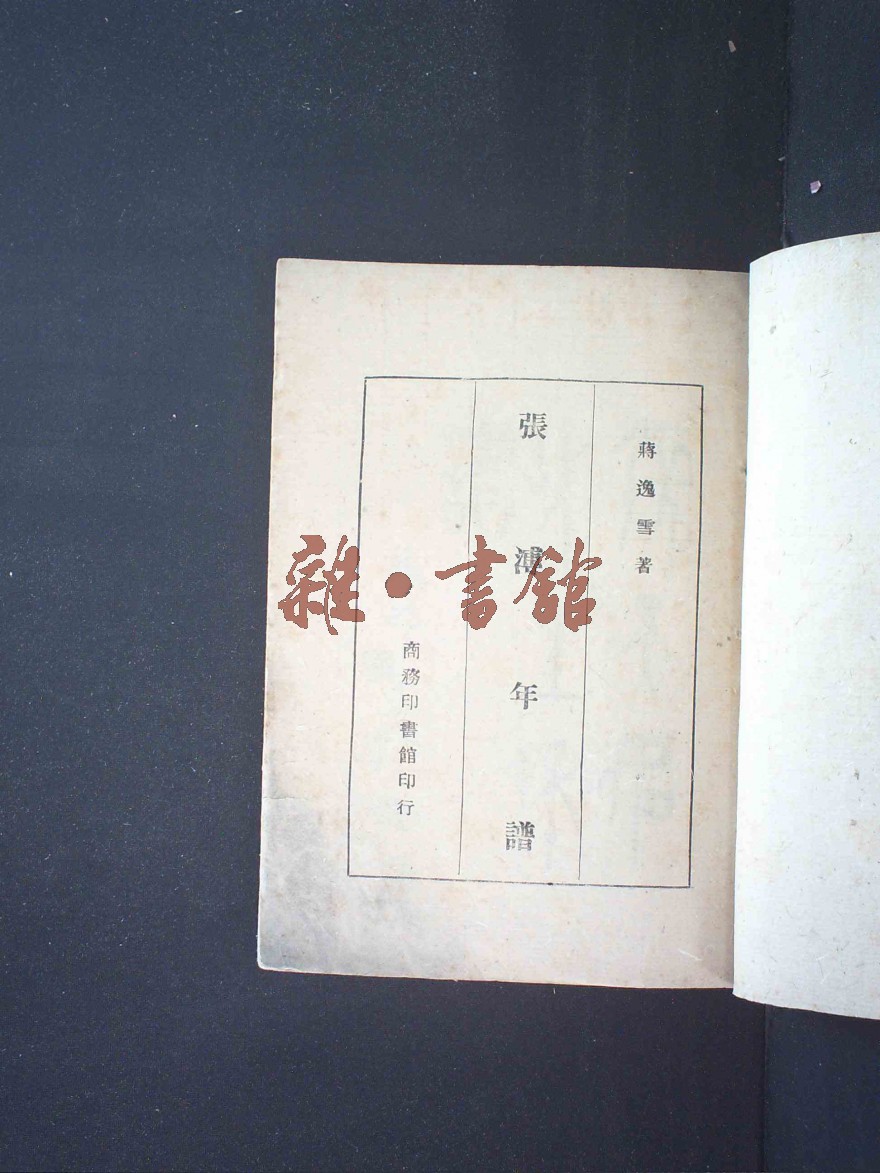 蔣逸雪著
張溥年譜
商務印書館印行
雜·書館